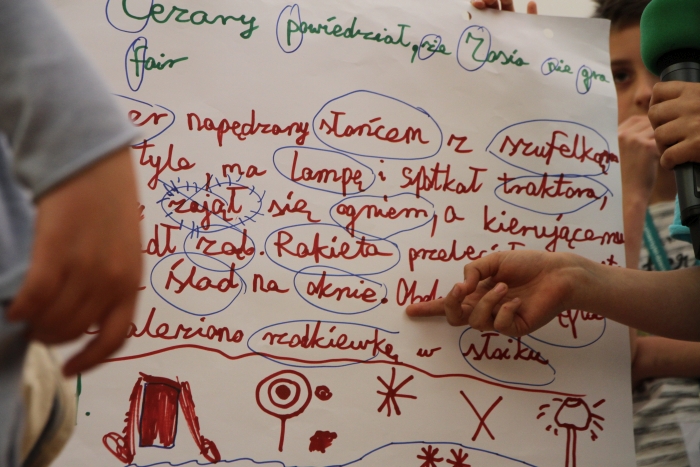 Cezary powiedział, że Zosia nie gra
fair
er napędzany słońcem z szufelką
tyla, ma lampę i spotkał traktora,
zajął się ogniem, a kierującemu
adł ząb. Rakieta
ślad na oknie.
aleziono rzodkiewkę w słoiku